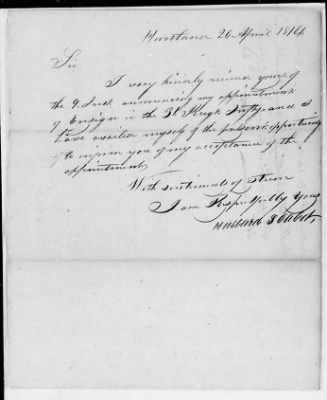 Hartland 26 April 1814
Sir
I very kindly received yours of
the 9 Inst announcing my appointment
of Ensign in the 31 Regt Infty and I
have availed myself of the present opportunity
to inform you of my acceptance of the
appointment
With sentiments of esteem
I am Respectfully Yours
Hubbard